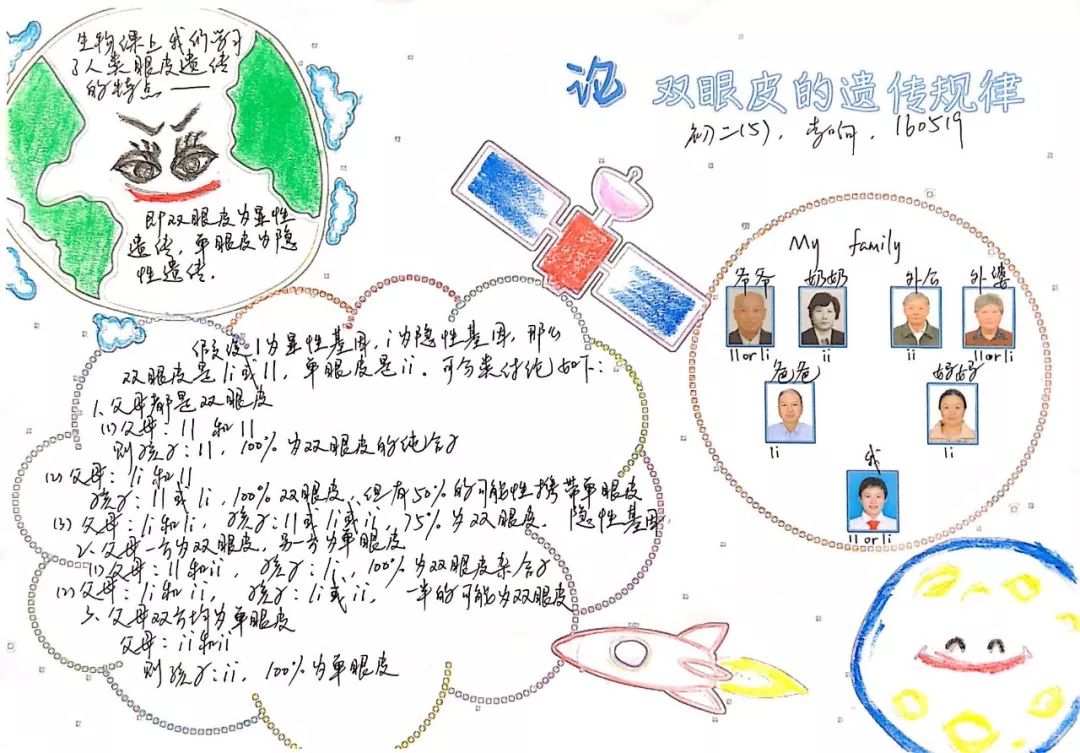 生物课上我们学习
了人类眼皮遗传
的特点——
即双眼皮为显性
遗传，单眼皮为隐
性遗传。
论 双眼皮的遗传规律
初二(5)，李响，160519
My family
爷爷 奶奶 外公 外婆
II or Ii ii ii II or Ii
爸爸 妈妈
Ii Ii
我
II or Ii
假设I为显性基因，i为隐性基因，那么
双眼皮是Ii或II，单眼皮是ii。可分类讨论如下：
1、父母都是双眼皮
(1)父母：II 和 II
则孩子：II，100%为双眼皮的纯合子
(2)父母：Ii 和 II
孩子：II或Ii，100%双眼皮，但有50%的可能性携带单眼皮
隐性基因
(3)父母：Ii和Ii，孩子：II或Ii或ii，75%为双眼皮.
2、父母一方为双眼皮，另一方为单眼皮
(1)父母：II和ii，孩子：Ii，100%为双眼皮杂合子
(2)父母：Ii和ii，孩子：Ii或ii，一半的可能为双眼皮
3、父母双方均为单眼皮
父母：ii和ii
则孩子：ii，100%为单眼皮